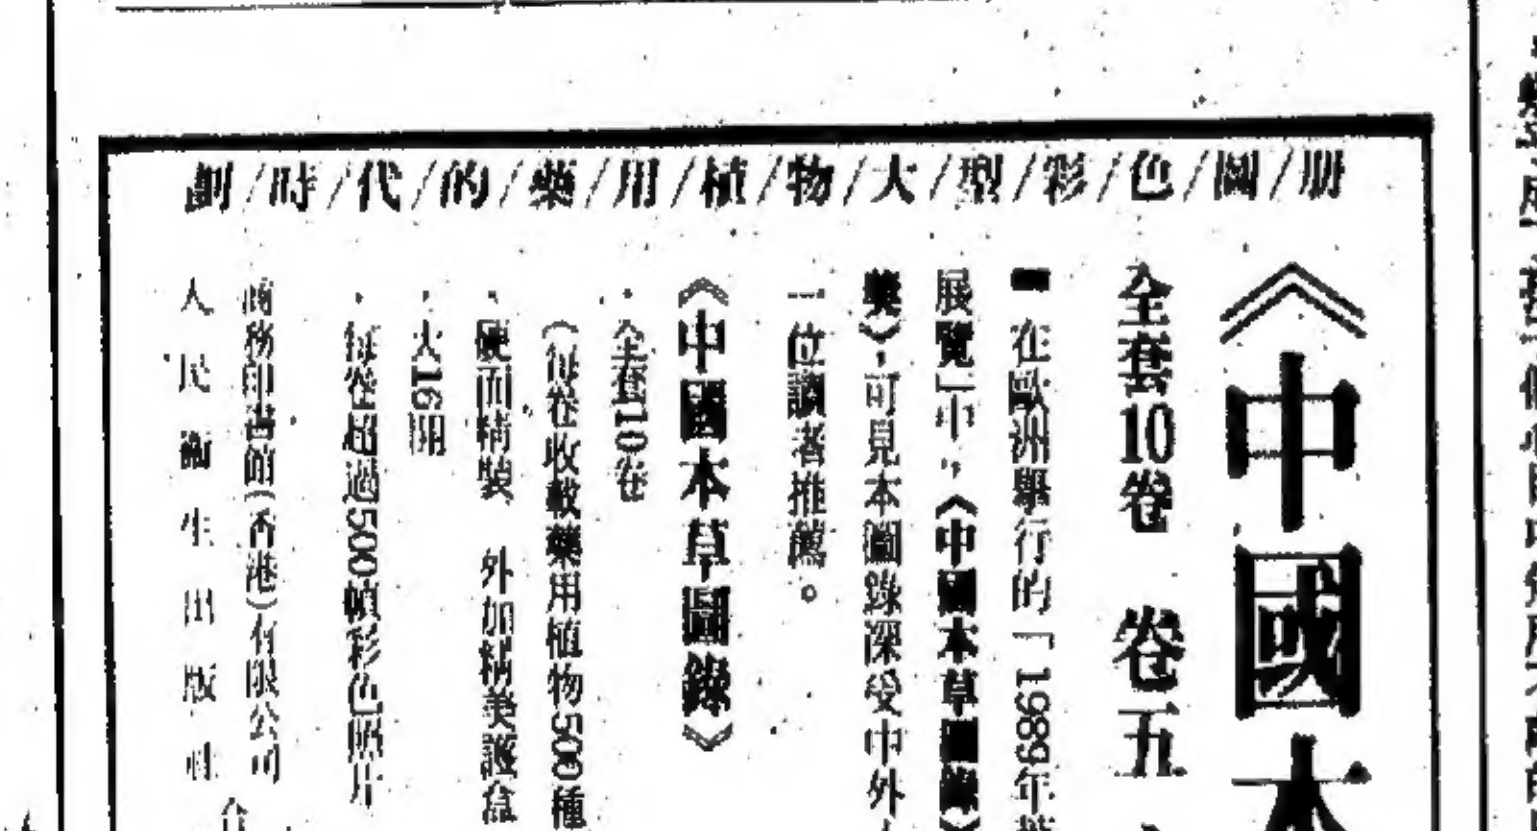 劃/時/代/的/藥/用/植/物/大/型/彩/色/圖/册
《中國本
全套10卷 卷五
■在歐洲舉行的「1989年
展覽」中,《中國本草圖錄》
可見本圖錄深受中外
一位讀者推薦。
《中國本草圖錄》
·全套10卷
(每卷收載藥用植物500種
·硬面精裝 外加精美護盒
·大16開
·每卷超過500幀彩色照片
商務印書館(香港)有限公司
人民衞生出版社
合